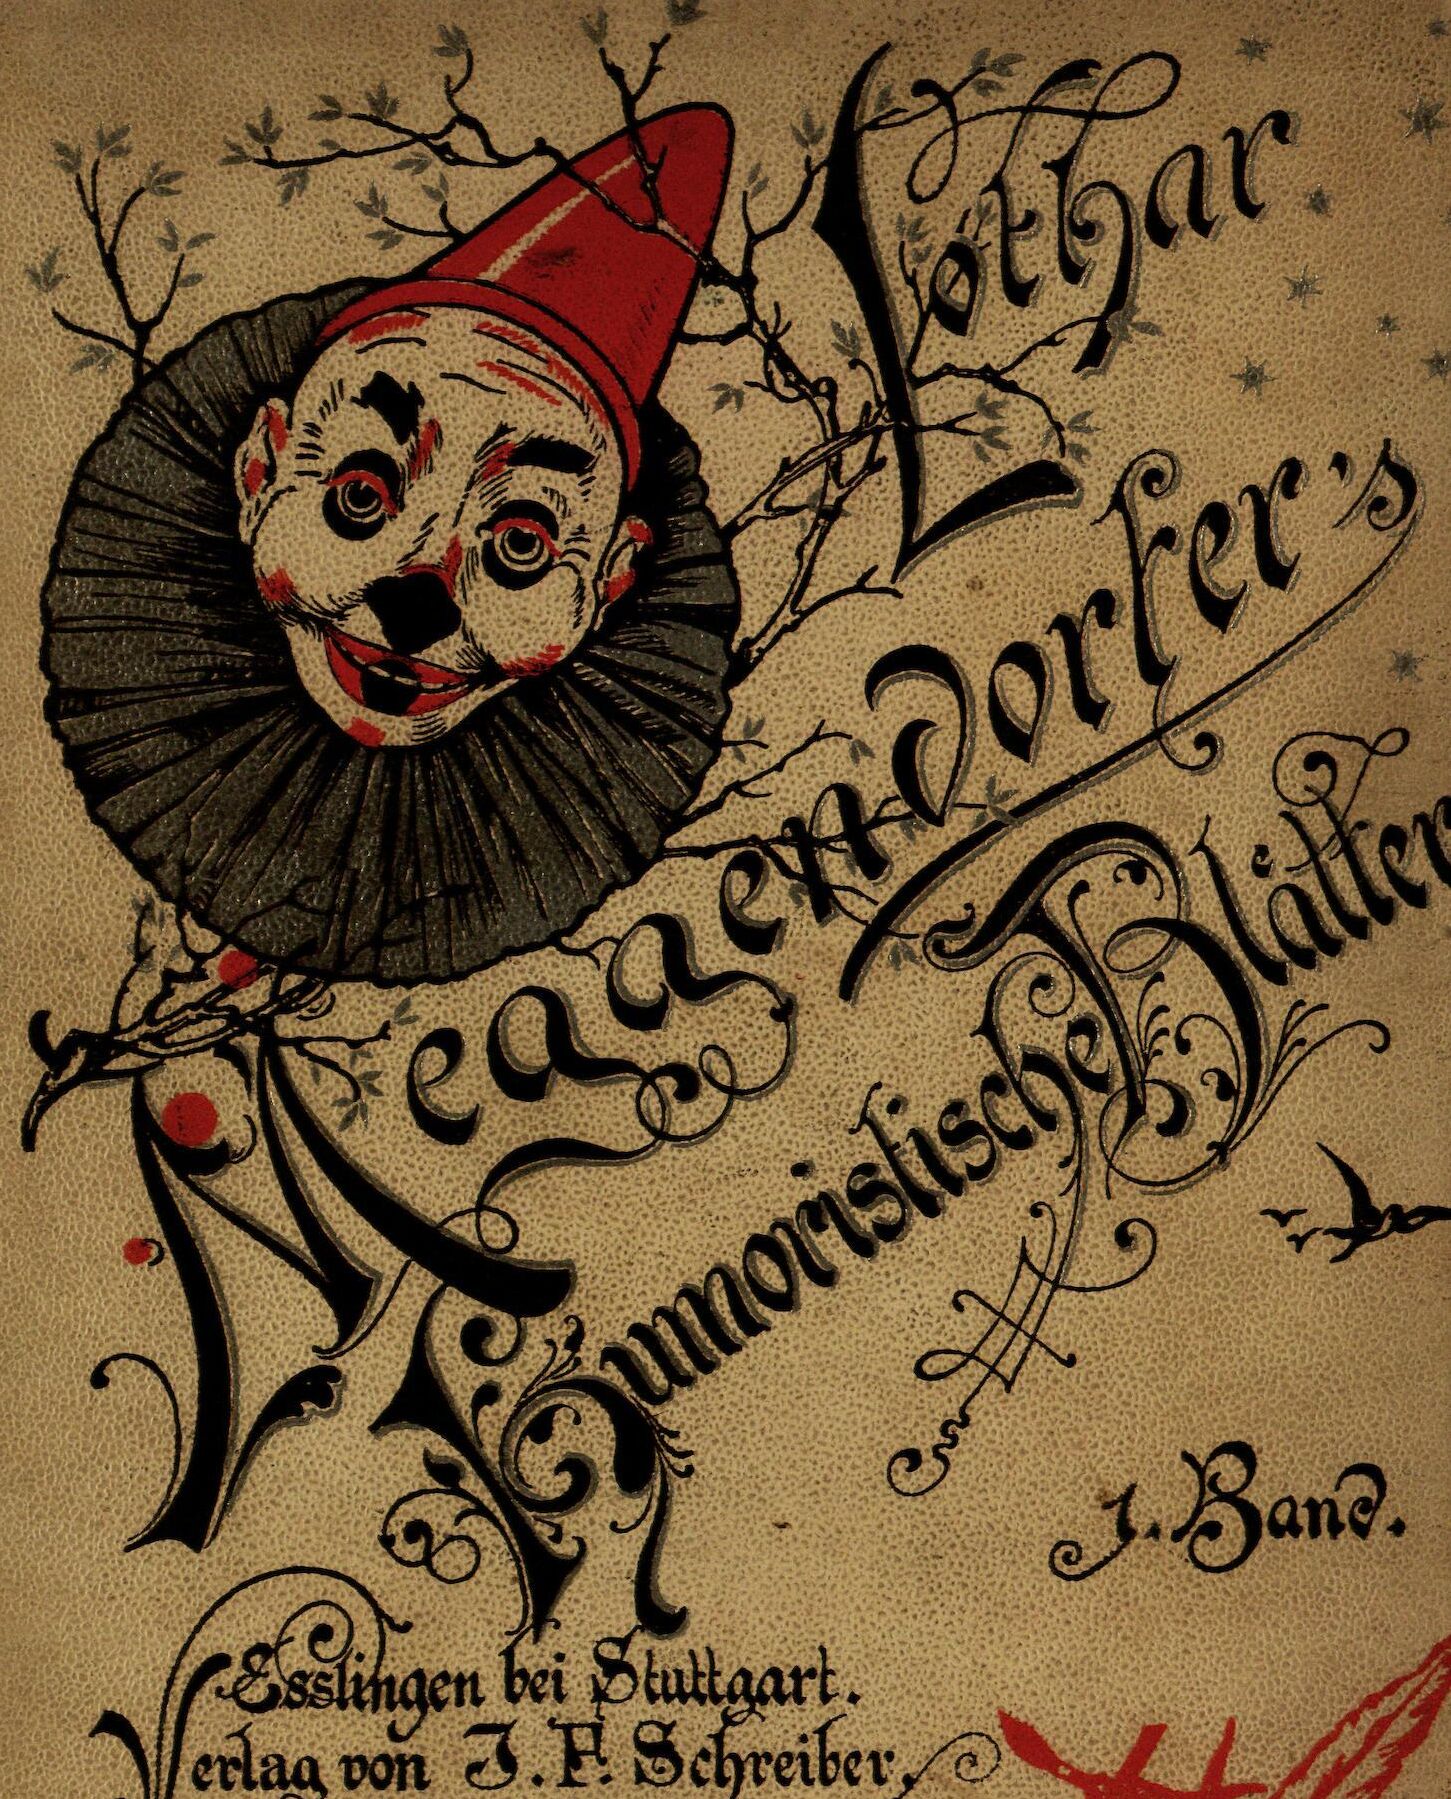 Lothar
Meggendorfer's
Humoristische Blätter
1. Band.
Esslingen bei Stuttgart.
Verlag von J. F. Schreiber.